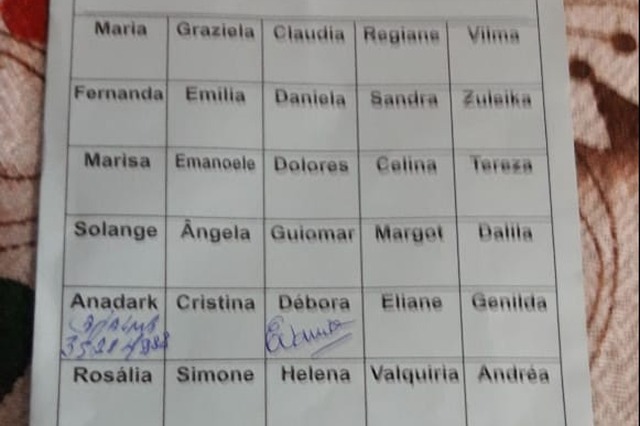 Maria Graziela Claudia Regiane Vilma
Fernanda Emilia Daniela Sandra Zuleika
Marisa Emanoele Dolores Celina Tereza
Solange Ângela Guiomar Margot Dalila
Anadark Cristina Débora Eliane Genilda
Rosália Simone Helena Valquiria Andréa